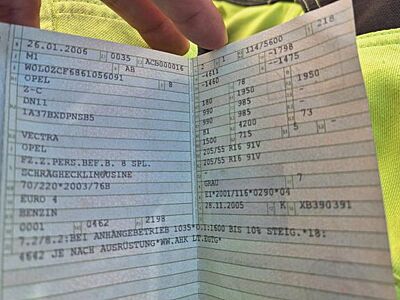 26.01.2006 0035 ACB000014
M1 AB
W0L0ZCF6861056091 8
OPEL
Z-C
DN11
1A37BXDPNSB5
VECTRA
OPEL
FZ.Z.PERS.BEF.B. 8 SPL.
SCHRÄGHECKLIMOUSINE
70/220*2003/76B
EURO 4
BENZIN
0001 0462 2198
2 1 114/5600 218
-4611 -1798
-1460 --1475
78
180 1950 - 1950
990 985 -
990 985 - 73
81 4200
1500 715 5 -
205/55 R16 91V
205/55 R16 91V
GRAU 7
E1*2001/116*0290*04
28.11.2005 K XB390391
7.2/8.2:BEI ANHÄNGEBETRIEB 1035*O.1:1600 BIS 10% STEIG.*18:
4642 JE NACH AUSRÜSTUNG*WW.AHK LT.EGTG*